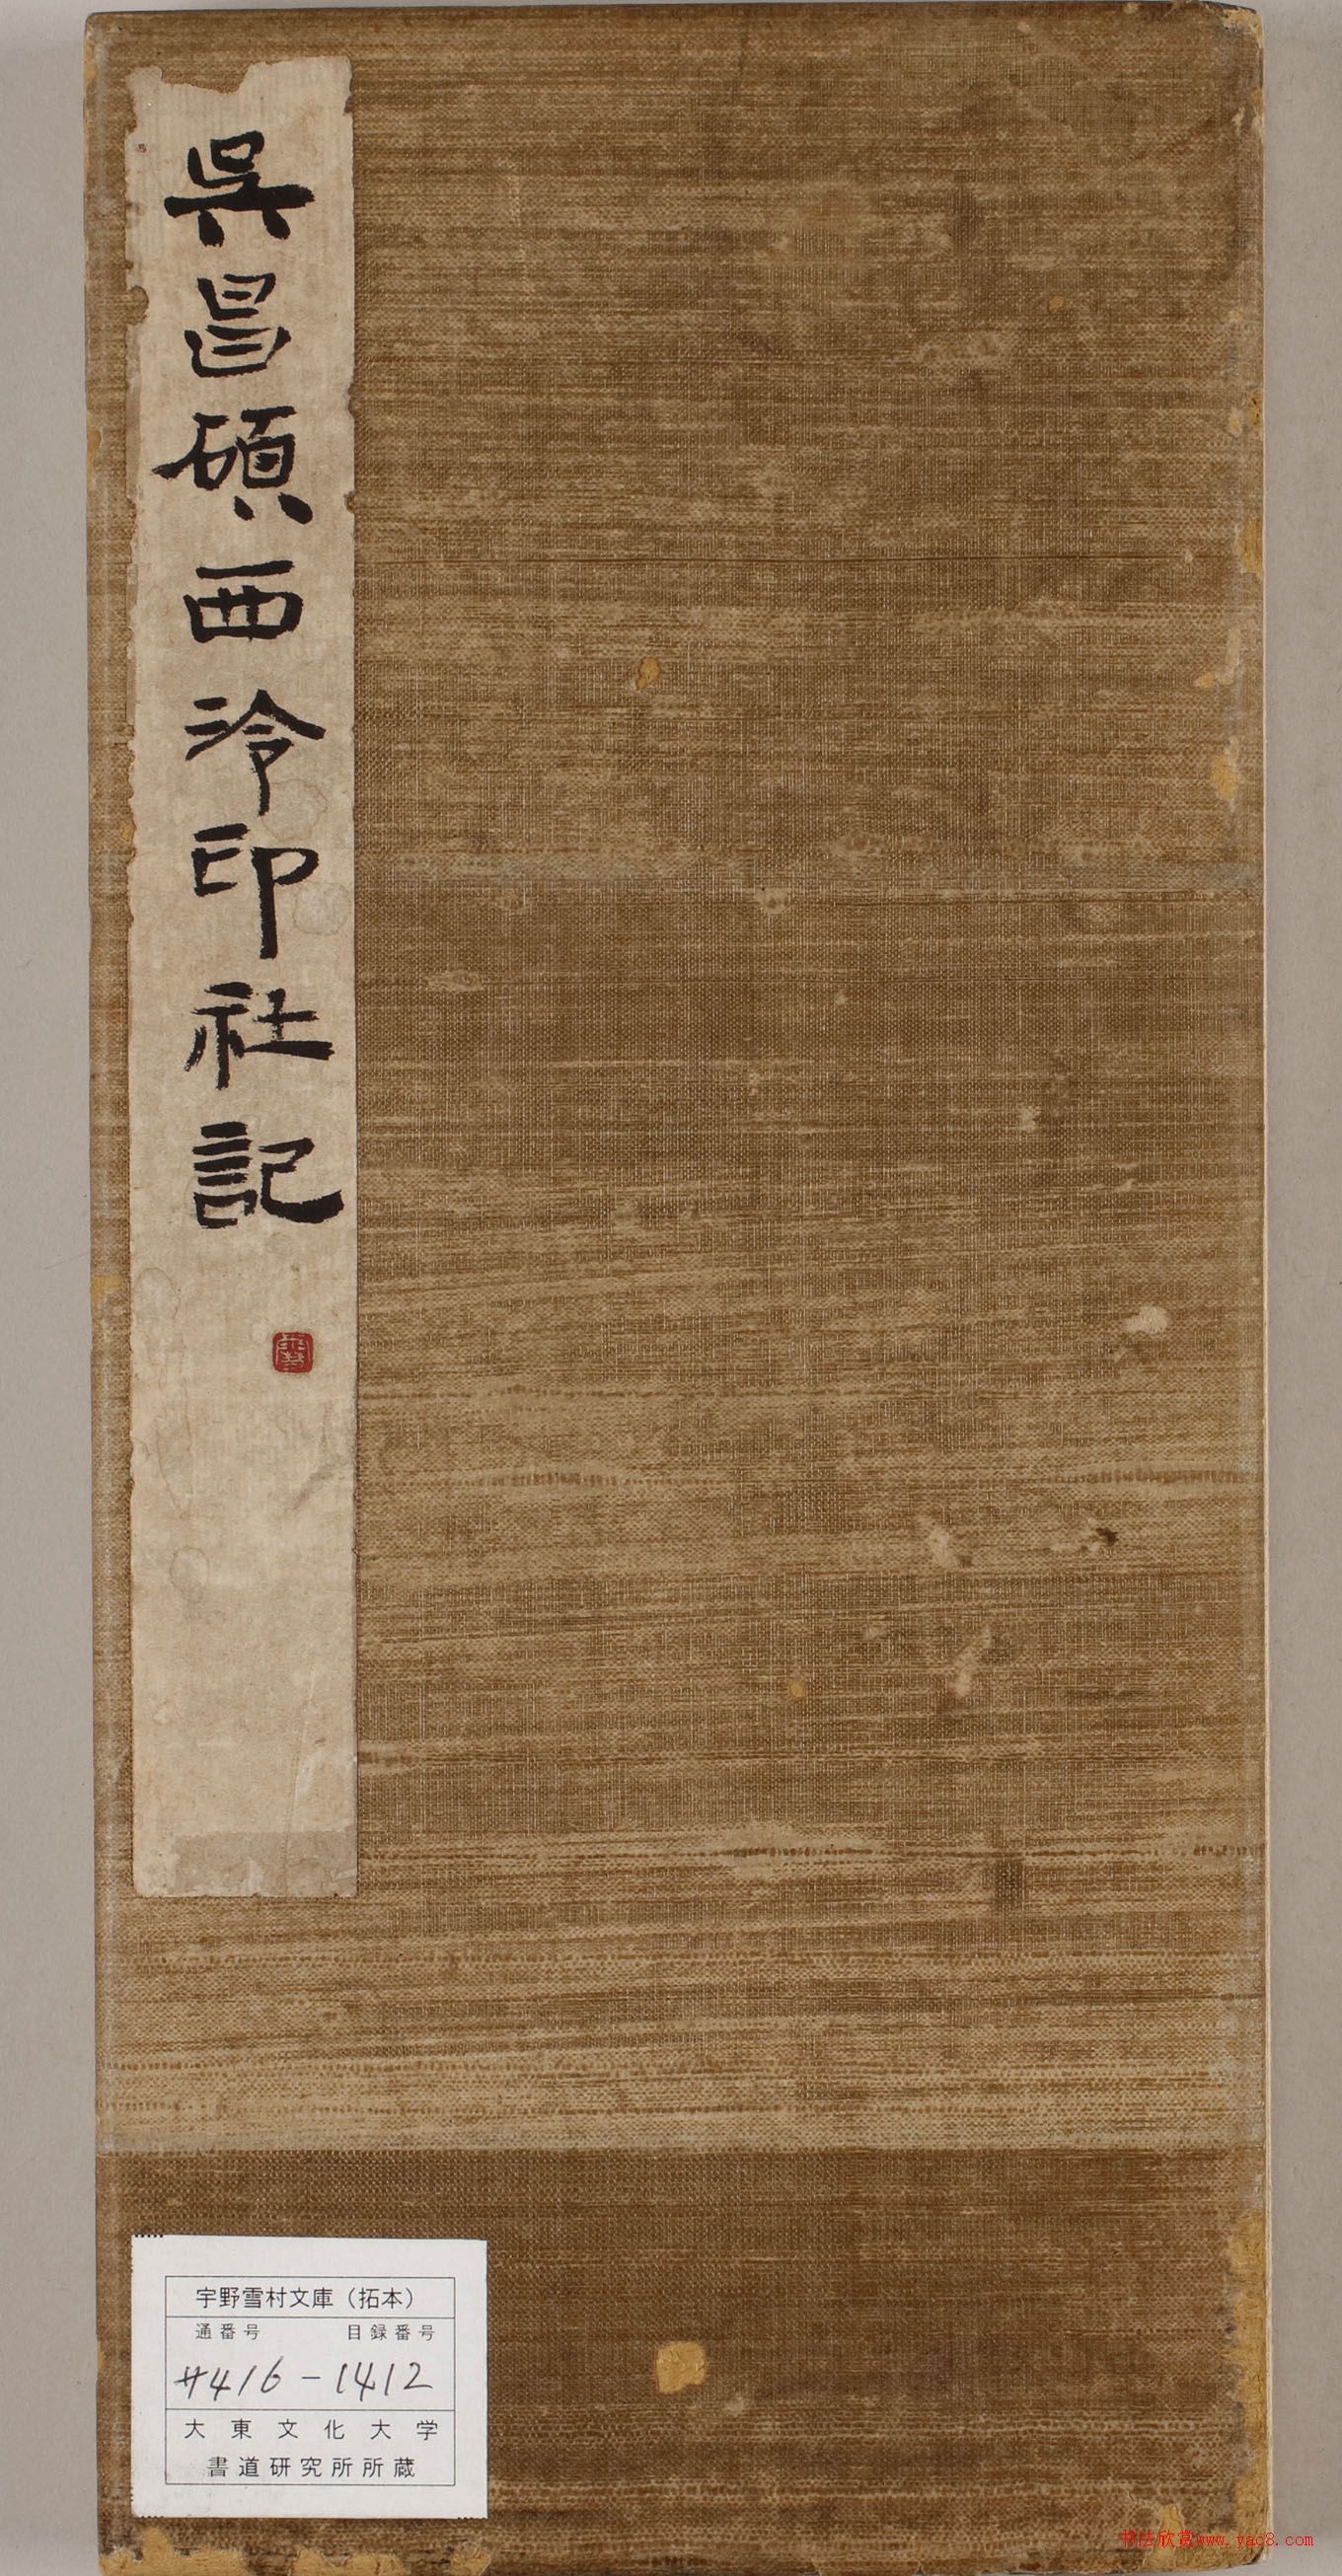 吳昌碩西泠印社記
宇野雪村文庫（拓本）
通番号 目録番号
サ416-1412
大東文化大学
書道研究所所蔵
书法欣赏www.yac8.com